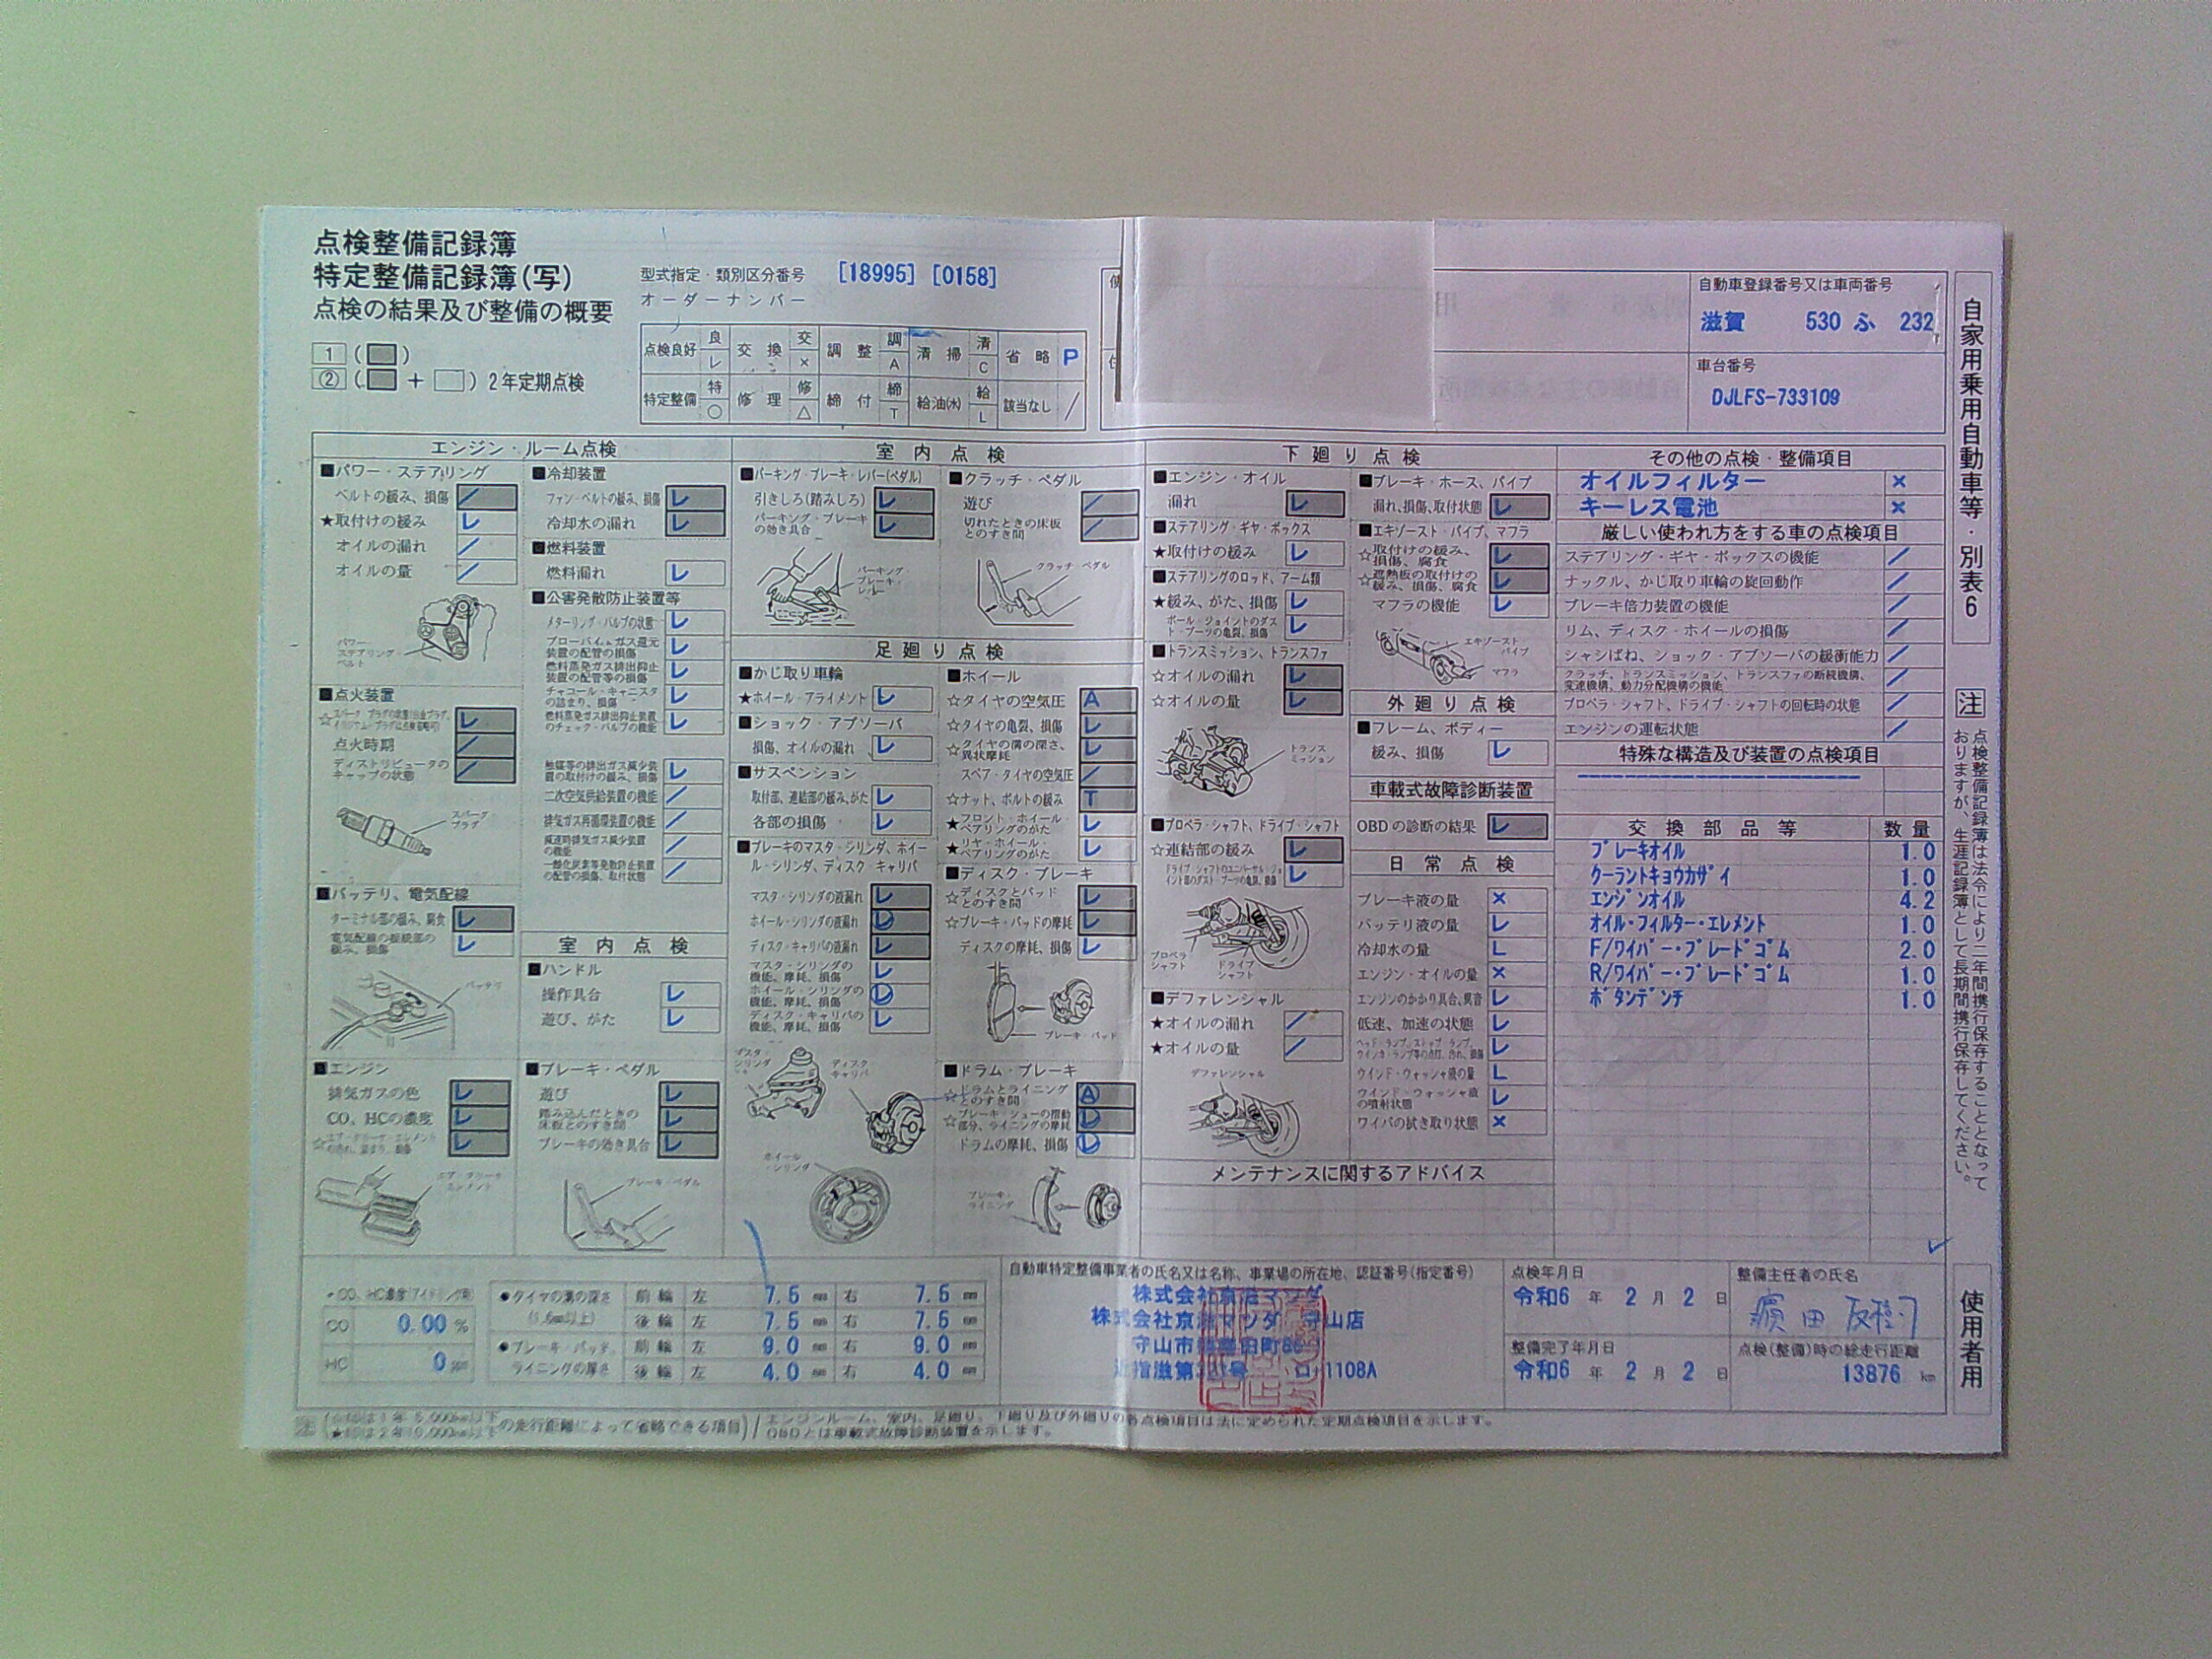 点検整備記録簿
特定整備記録簿(写)
点検の結果及び整備の概要
1 ( )
② ( + ) 2年定期点検
型式指定・類別区分番号 [18995] [0158]
オーダーナンバー
点検良好 良 レ 交換 交 × 調整 調 A 清掃 清 C 省略 P
特定整備 特 ○ 修理 修 △ 締付 締 T 給油(水) 給 L 該当なし /
自動車登録番号又は車両番号
滋賀 530 ふ 232
車台番号
DJLFS-733109
自家用乗用自動車等・別表6
注 点検整備記録簿は法令により二年間携行保存することとなっておりますが、生涯記録簿として長期間携行保存してください。
使用者用
エンジン・ルーム点検
■パワー・ステアリング
ベルトの緩み、損傷 /
★取付けの緩み レ
オイルの漏れ /
オイルの量 /
パワーステアリングベルト
■点火装置
点火時期 /
ディストリビュータのキャップの状態 /
スパークプラグ
■バッテリ、電気配線
ターミナル部の緩み、腐食 レ
電気配線の接続部の緩み、損傷 レ
バッテリ
■エンジン
排気ガスの色 レ
CO、HCの濃度 レ
■冷却装置
ファン・ベルトの緩み、損傷 レ
冷却水の漏れ レ
■燃料装置
燃料漏れ レ
■公害発散防止装置等
メターリング・バルブの状態 レ
ブローバイ・ガス還元装置の配管の損傷 レ
燃料蒸発ガス排出抑止装置の配管等の損傷 レ
チャコール・キャニスタの詰まり、損傷 レ
燃料蒸発ガス排出抑止装置のチェック・バルブの機能 レ
触媒等の排出ガス減少装置の取付けの緩み、損傷 レ
二次空気供給装置の機能 /
排気ガス再循環装置の機能 /
減速時排気ガス減少装置の機能 /
一酸化炭素等発散防止装置の配管の損傷、取付状態 /
室内点検
■ハンドル
操作具合 レ
遊び、がた レ
■ブレーキ・ペダル
遊び レ
踏み込んだときの床板とのすき間 レ
ブレーキの効き具合 レ
ブレーキ・ペダル
室内点検
■パーキング・ブレーキ・レバー(ペダル)
引きしろ(踏みしろ) レ
パーキング・ブレーキの効き具合 レ
パーキング・ブレーキ・レバー
■クラッチ・ペダル
遊び /
切れたときの床板とのすき間 /
クラッチ・ペダル
足廻り点検
■かじ取り車輪
★ホイール・アライメント レ
■ショック・アブソーバ
損傷、オイルの漏れ レ
■サスペンション
取付部、連結部の緩み、がた レ
各部の損傷 レ
■ブレーキのマスタ・シリンダ、ホイール・シリンダ、ディスク・キャリパ
マスタ・シリンダの液漏れ レ
ホイール・シリンダの液漏れ レ
ディスク・キャリパの液漏れ レ
マスタ・シリンダの機能、摩耗、損傷 レ
ホイール・シリンダの機能、摩耗、損傷 レ
ディスク・キャリパの機能、摩耗、損傷 レ
マスタ・シリンダ
ディスク・キャリパ
ホイール・シリンダ
■ホイール
☆タイヤの空気圧 A
☆タイヤの亀裂、損傷 レ
☆タイヤの溝の深さ、異状摩耗 レ
スペア・タイヤの空気圧 /
☆ナット、ボルトの緩み T
★フロント・ホイール・ベアリングのがた レ
★リヤ・ホイール・ベアリングのがた レ
■ディスク・ブレーキ
☆ディスクとパッドとのすき間 レ
☆ブレーキ・パッドの摩耗 レ
ディスクの摩耗、損傷 レ
ブレーキ・パッド
■ドラム・ブレーキ
☆ドラムとライニングとのすき間 Ⓐ
☆ブレーキ・シューの摺動部分、ライニングの摩耗 レ
ドラムの摩耗、損傷 レ
ブレーキ・ライニング
下廻り点検
■エンジン・オイル
漏れ レ
■ステアリング・ギヤ・ボックス
★取付けの緩み レ
■ステアリングのロッド、アーム類
★緩み、がた、損傷 レ
ボール・ジョイントのダスト・ブーツの亀裂、損傷 レ
■トランスミッション、トランスファ
☆オイルの漏れ レ
☆オイルの量 レ
トランスミッション
■プロペラ・シャフト、ドライブ・シャフト
☆連結部の緩み レ
ドライブ・シャフトのユニバーサル・ジョイント部のダスト・ブーツの亀裂、損傷 レ
プロペラシャフト
ドライブシャフト
■デファレンシャル
★オイルの漏れ /
★オイルの量 /
デファレンシャル
■ブレーキ・ホース、パイプ
漏れ、損傷、取付状態 レ
■エキゾースト・パイプ、マフラ
☆取付けの緩み、損傷、腐食 レ
☆遮熱板の取付けの緩み、損傷、腐食 レ
マフラの機能 レ
エキゾーストパイプ
マフラ
外廻り点検
■フレーム、ボディー
緩み、損傷 レ
車載式故障診断装置
OBDの診断の結果 レ
日常点検
ブレーキ液の量 ×
バッテリ液の量 レ
冷却水の量 L
エンジン・オイルの量 ×
エンジンのかかり具合、異音 レ
低速、加速の状態 レ
ヘッド・ランプ、ストップ・ランプ、ウインカ・ランプ等の点灯、汚れ、損傷 レ
ウインド・ウォッシャ液の量 L
ウインド・ウォッシャ液の噴射状態 レ
ワイパの拭き取り状態 ×
メンテナンスに関するアドバイス
その他の点検・整備項目
オイルフィルター ×
キーレス電池 ×
厳しい使われ方をする車の点検項目
ステアリング・ギヤ・ボックスの機能 /
ナックル、かじ取り車輪の旋回動作 /
ブレーキ倍力装置の機能 /
リム、ディスク・ホイールの損傷 /
シャシばね、ショック・アブソーバの緩衝能力 /
クラッチ、トランスミッション、トランスファの断続機構、変速機構、動力分配機構の機能 /
プロペラ・シャフト、ドライブ・シャフトの回転時の状態 /
エンジンの運転状態 /
特殊な構造及び装置の点検項目
交換部品等 数量
ブレーキオイル 1.0
クーラントキョウカザイ 1.0
エンジンオイル 4.2
オイル・フィルター・エレメント 1.0
F/ワイパー・ブレードゴム 2.0
R/ワイパー・ブレードゴム 1.0
ボタンデンチ 1.0
CO 0.00 %
HC 0 ppm
●タイヤの溝の深さ 前輪 左 7.5 mm 右 7.5 mm
(1.6mm以上) 後輪 左 7.5 mm 右 7.5 mm
●ブレーキ・パッド、 前輪 左 9.0 mm 右 9.0 mm
ライニングの厚さ 後輪 左 4.0 mm 右 4.0 mm
自動車特定整備事業者の氏名又は名称、事業場の所在地、認証番号(指定番号)
株式会社京滋マツダ
株式会社京滋マツダ 守山店
守山市
1108A
点検年月日
令和6年 2月 2日
整備完了年月日
令和6年 2月 2日
整備主任者の氏名
点検(整備)時の総走行距離
13876 km
の走行距離によって省略できる項目)/エンジンルーム、室内、足廻り、下廻り及び外廻りの各点検項目は法に定められた定期点検項目を示します。
OBDとは車載式故障診断装置を示します。